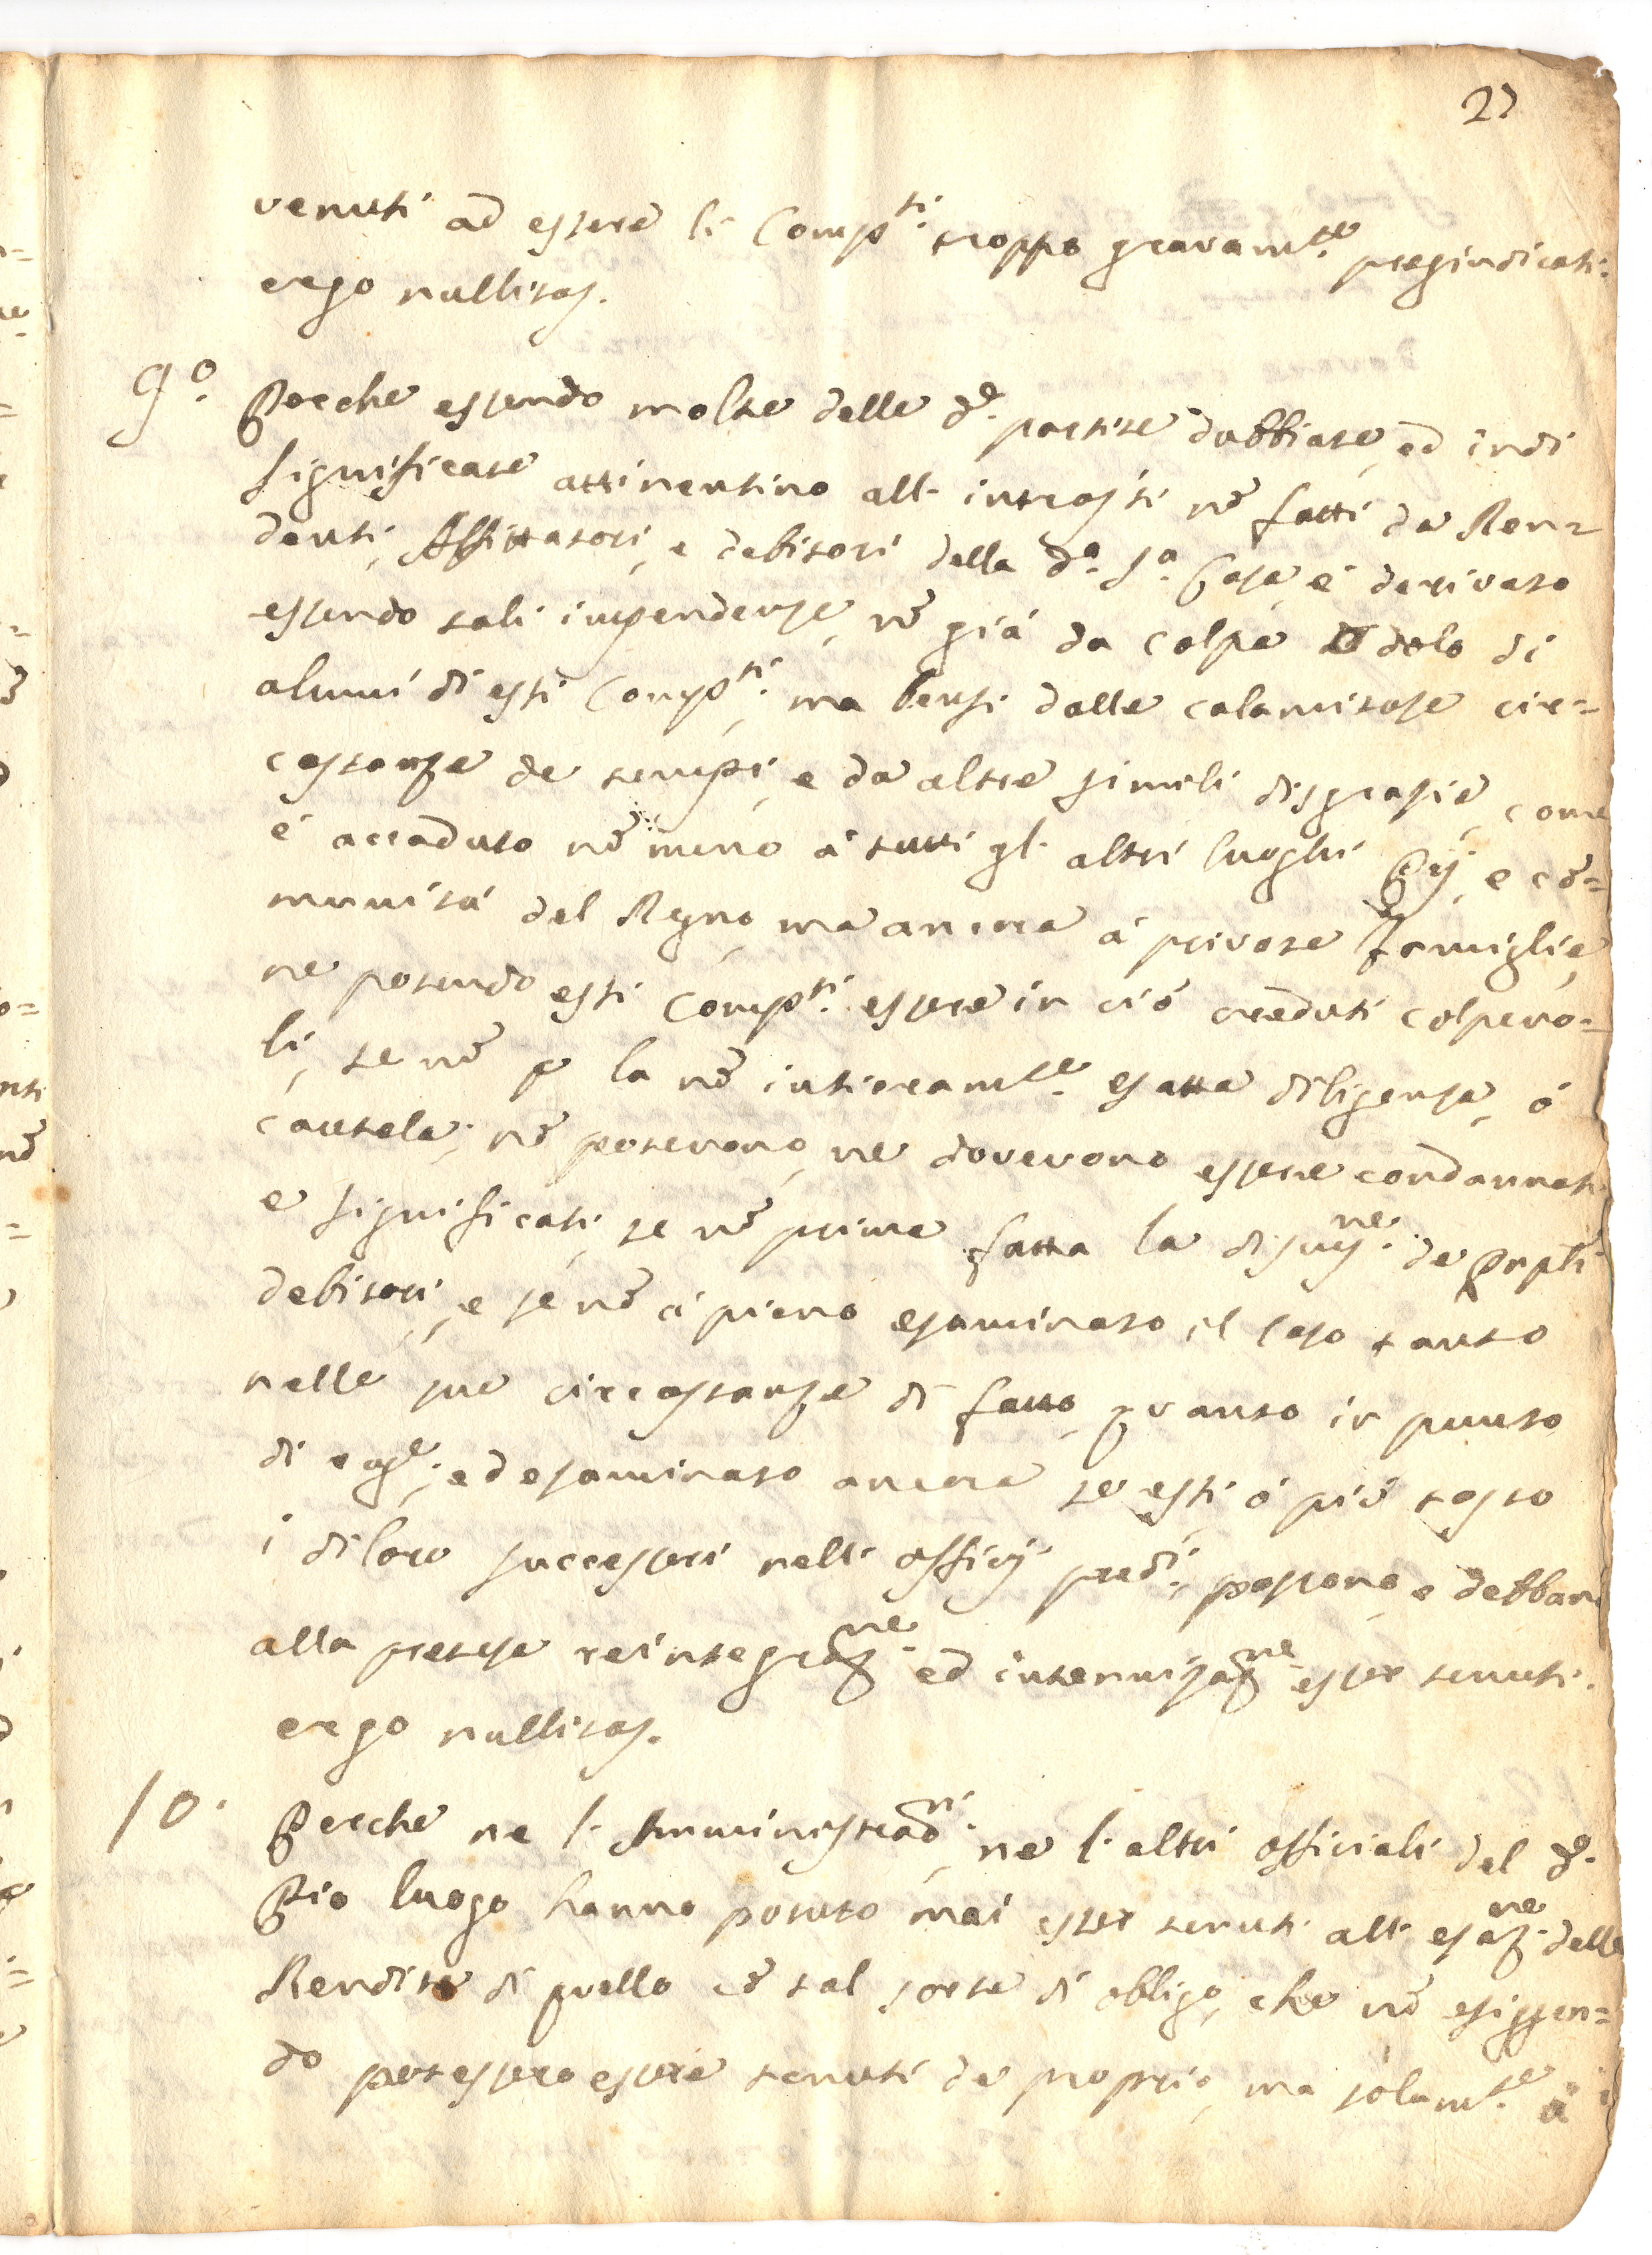 27
venuti ad essere li Comp.ti troppo gravam.te pregiudicati:
ergo nullitas.
9.o Perche essendo molte delle d.e partite dubbiate, ed indi
significate attinentino all' introiti nõ fatti da Ren=
denti, Affittatori, e debitori della d.a S.a Casa, è derivato
essendo tali impendenze, nõ già da colpa o dolo di
alcuni di essi Comp.ti, ma bensi dalle calamitose cir=
costanze de tempi, e da altre simili disgrazie, come
è accaduto nõ meno à tutti gl' altri luoghi Pij, e cõ=
munità del Regno, ma ancora à private famiglie,
ne potendo essi Comp.ti essere in ciò creduti colpevo=
li, se nõ p la nõ intieram.te esatta diligenza, ò
cautela; nõ potevono, ne dovevono essere condannati
e significati, se nõ prima fatta la discuss.ne de prnti
debitori, e se nõ à pieno esaminato il caso tanto
nelle sue circostanze di fatto, quanto in punto
di ; ed esaminato ancora se essi, ò più tosto
i di loro successori nelli officij pred.i, possono, e debbano
alla pretesa reintegraz.ne ed intennizaz.ne esser tenuti.
ergo nullitas.
10. Perche ne l' Amministrad.ri, ne l' altri officiali del d.o
Pio luogo hanno potuto mai esser tenuti all' esaz.ne delle
Rendite di quello cõ tal sorte di obligo, che nõ esiggen=
do potessero essere tenuti de proprio, ma solam.te à